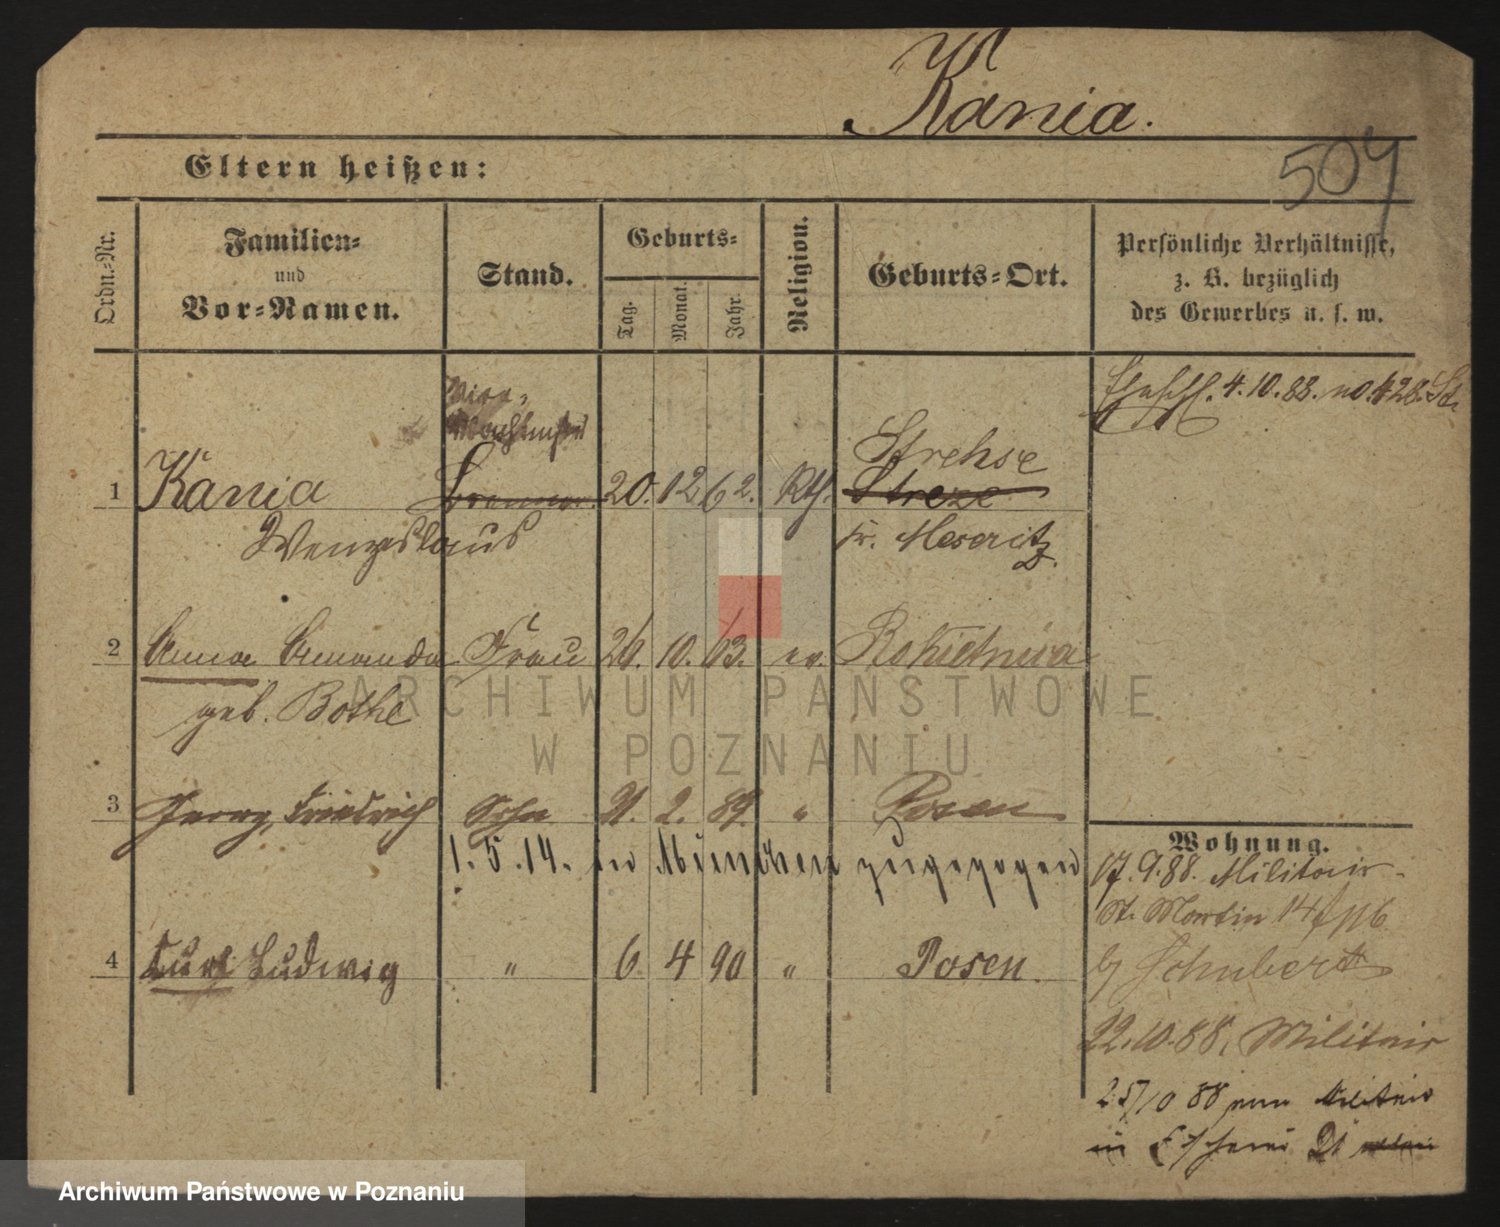 Kania.
507
Eltern heißen:
Ordn.-Nr.
Familien-
und
Vor-Namen.
Stand.
Geburts-
Tag.
Monat.
Jahr.
Religion.
Geburts-Ort.
Persönliche Verhältnisse,
z. B. bezüglich
des Gewerbes u. s. w.
4.10.88. no. 428.
Vice-
Wachtmstr
Strehse
1 Kania 20. 12 62. Kth. Streze
Wenzeslaus Kr. Meseritz
2 Anna Amanda Frau 26. 10. 63. ev. Rokietnica
geb. Bothe
3 Georg, Friedrich Sohn 21. 2. 89. " Posen
1. 5. 14. in München zugezogen
4 Curt Ludwig " 6 4 90 " Posen.
Wohnung.
17. 9. 88. Militair-
St. Martin 14
b/ Schubert
22. 10. 88. Militair
25/10 88 zum Militair
in
ARCHIWUM PAŃSTWOWE
W POZNANIU
Archiwum Państwowe w Poznaniu